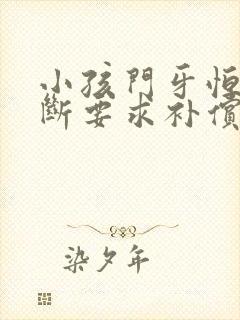 小孩門牙恒
斷要求补償
染夕年